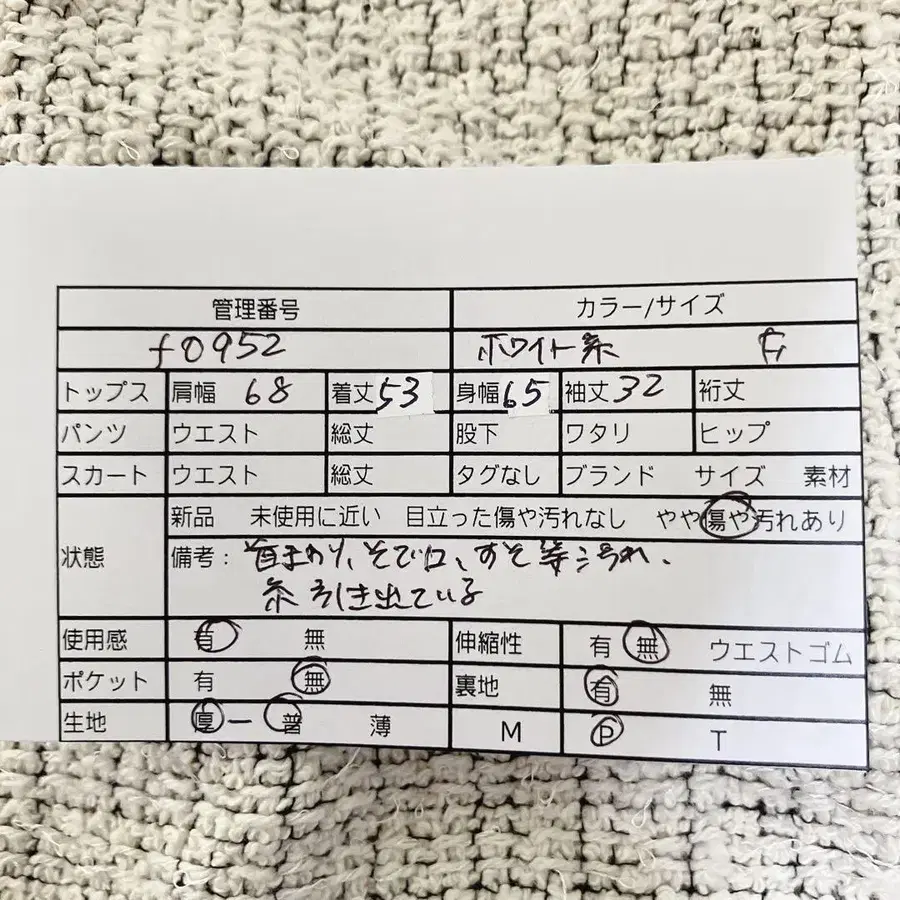 管理番号 カラー/サイズ
f0952 ホワイト系
トップス 肩幅 68 着丈 53 身幅 65 袖丈 32 裄丈
パンツ ウエスト 総丈 股下 ワタリ ヒップ
スカート ウエスト 総丈 タグなし ブランド サイズ 素材
状態 新品 未使用に近い 目立った傷や汚れなし やや傷や汚れあり
備考： 首まわり、そで口、すそ等汚れ、
糸引き出ている
使用感 有 無 伸縮性 有 無 ウエストゴム
ポケット 有 無 裏地 有 無
生地 厚 ー 普 薄 M P T